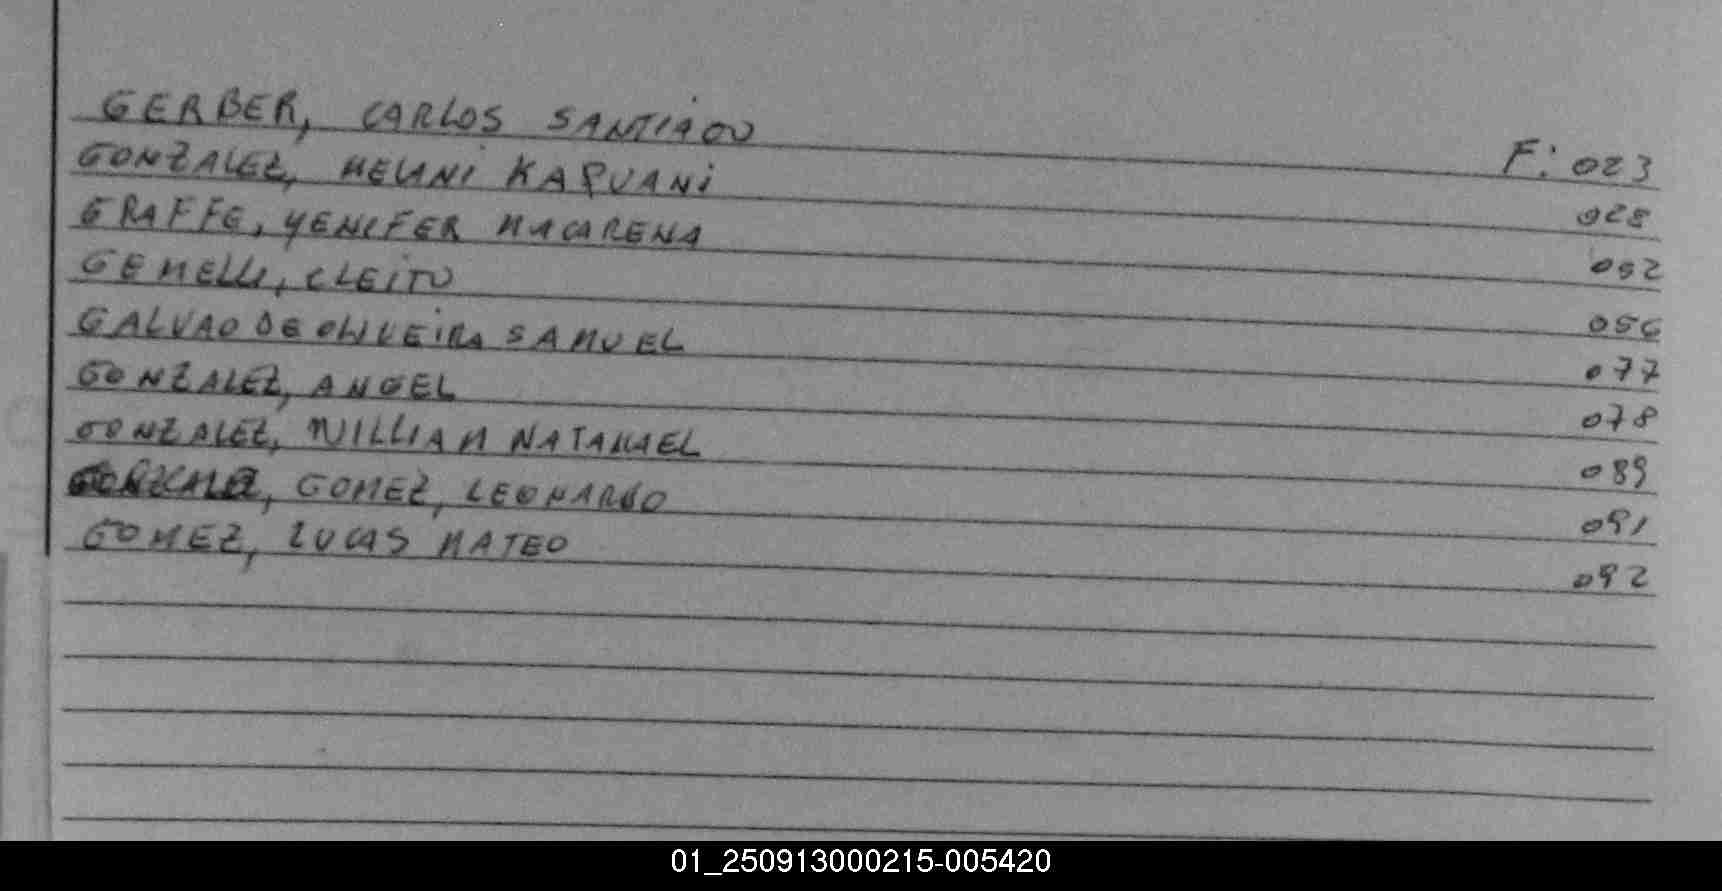 GERBER, CARLOS SANTIAGO F: 023
GONZALEZ, MELANI KAPUANI 028
GRAFFE, YENIFER MACARENA 052
GEMELLI, CLEITO 056
GALVAO DE OLIVEIRA SAMUEL 077
GONZALEZ, ANGEL 078
GONZALEZ, WILLIAM NATANAEL 089
GOMEZ, LEONARDO 091
GOMEZ, LUCAS MATEO 092
01_250913000215-005420